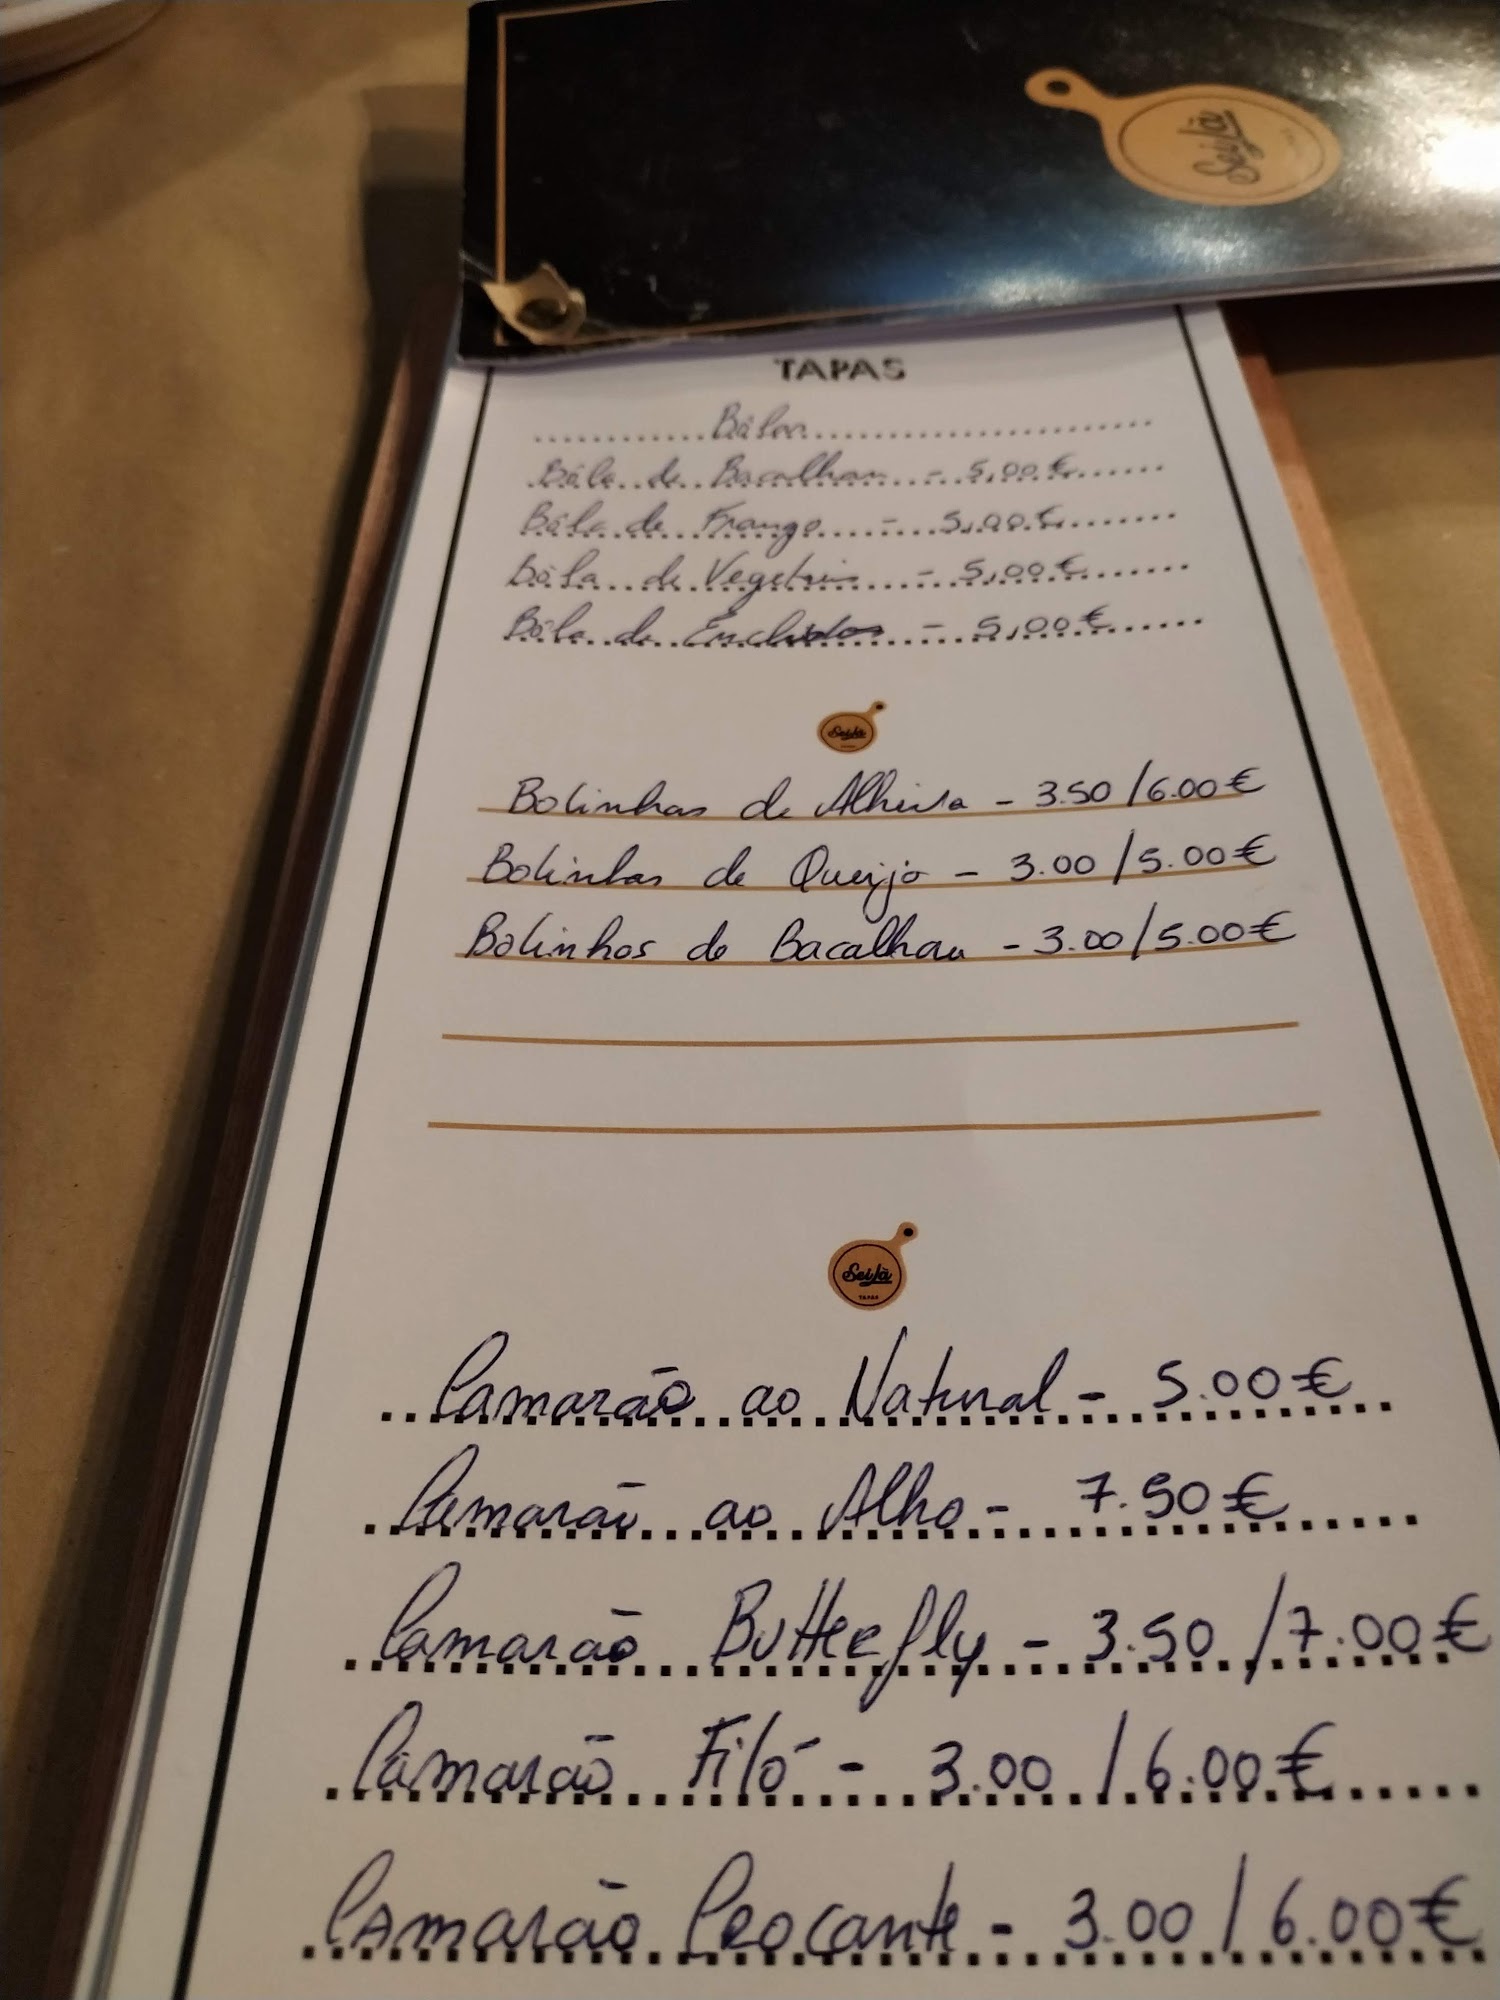 SeiLá
TAPAS
Bôlas
Bôla de Bacalhau - 5,00€
Bôla de Frango - 5,00€
Bôla de Vegetais - 5,00€
Bôla de Enchidos - 5,00€
SeiLá
Bolinhas de Alheira - 3.50 / 6.00€
Bolinhas de Queijo - 3.00 / 5.00€
Bolinhos de Bacalhau - 3.00 / 5.00€
SeiLá
TAPAS
Camarão ao Natural - 5.00€
Camarão ao Alho - 7.50€
Camarão Butterfly - 3.50 / 7.00€
Camarão Filó - 3.00 / 6.00€
Camarão Crocante - 3.00 / 6.00€